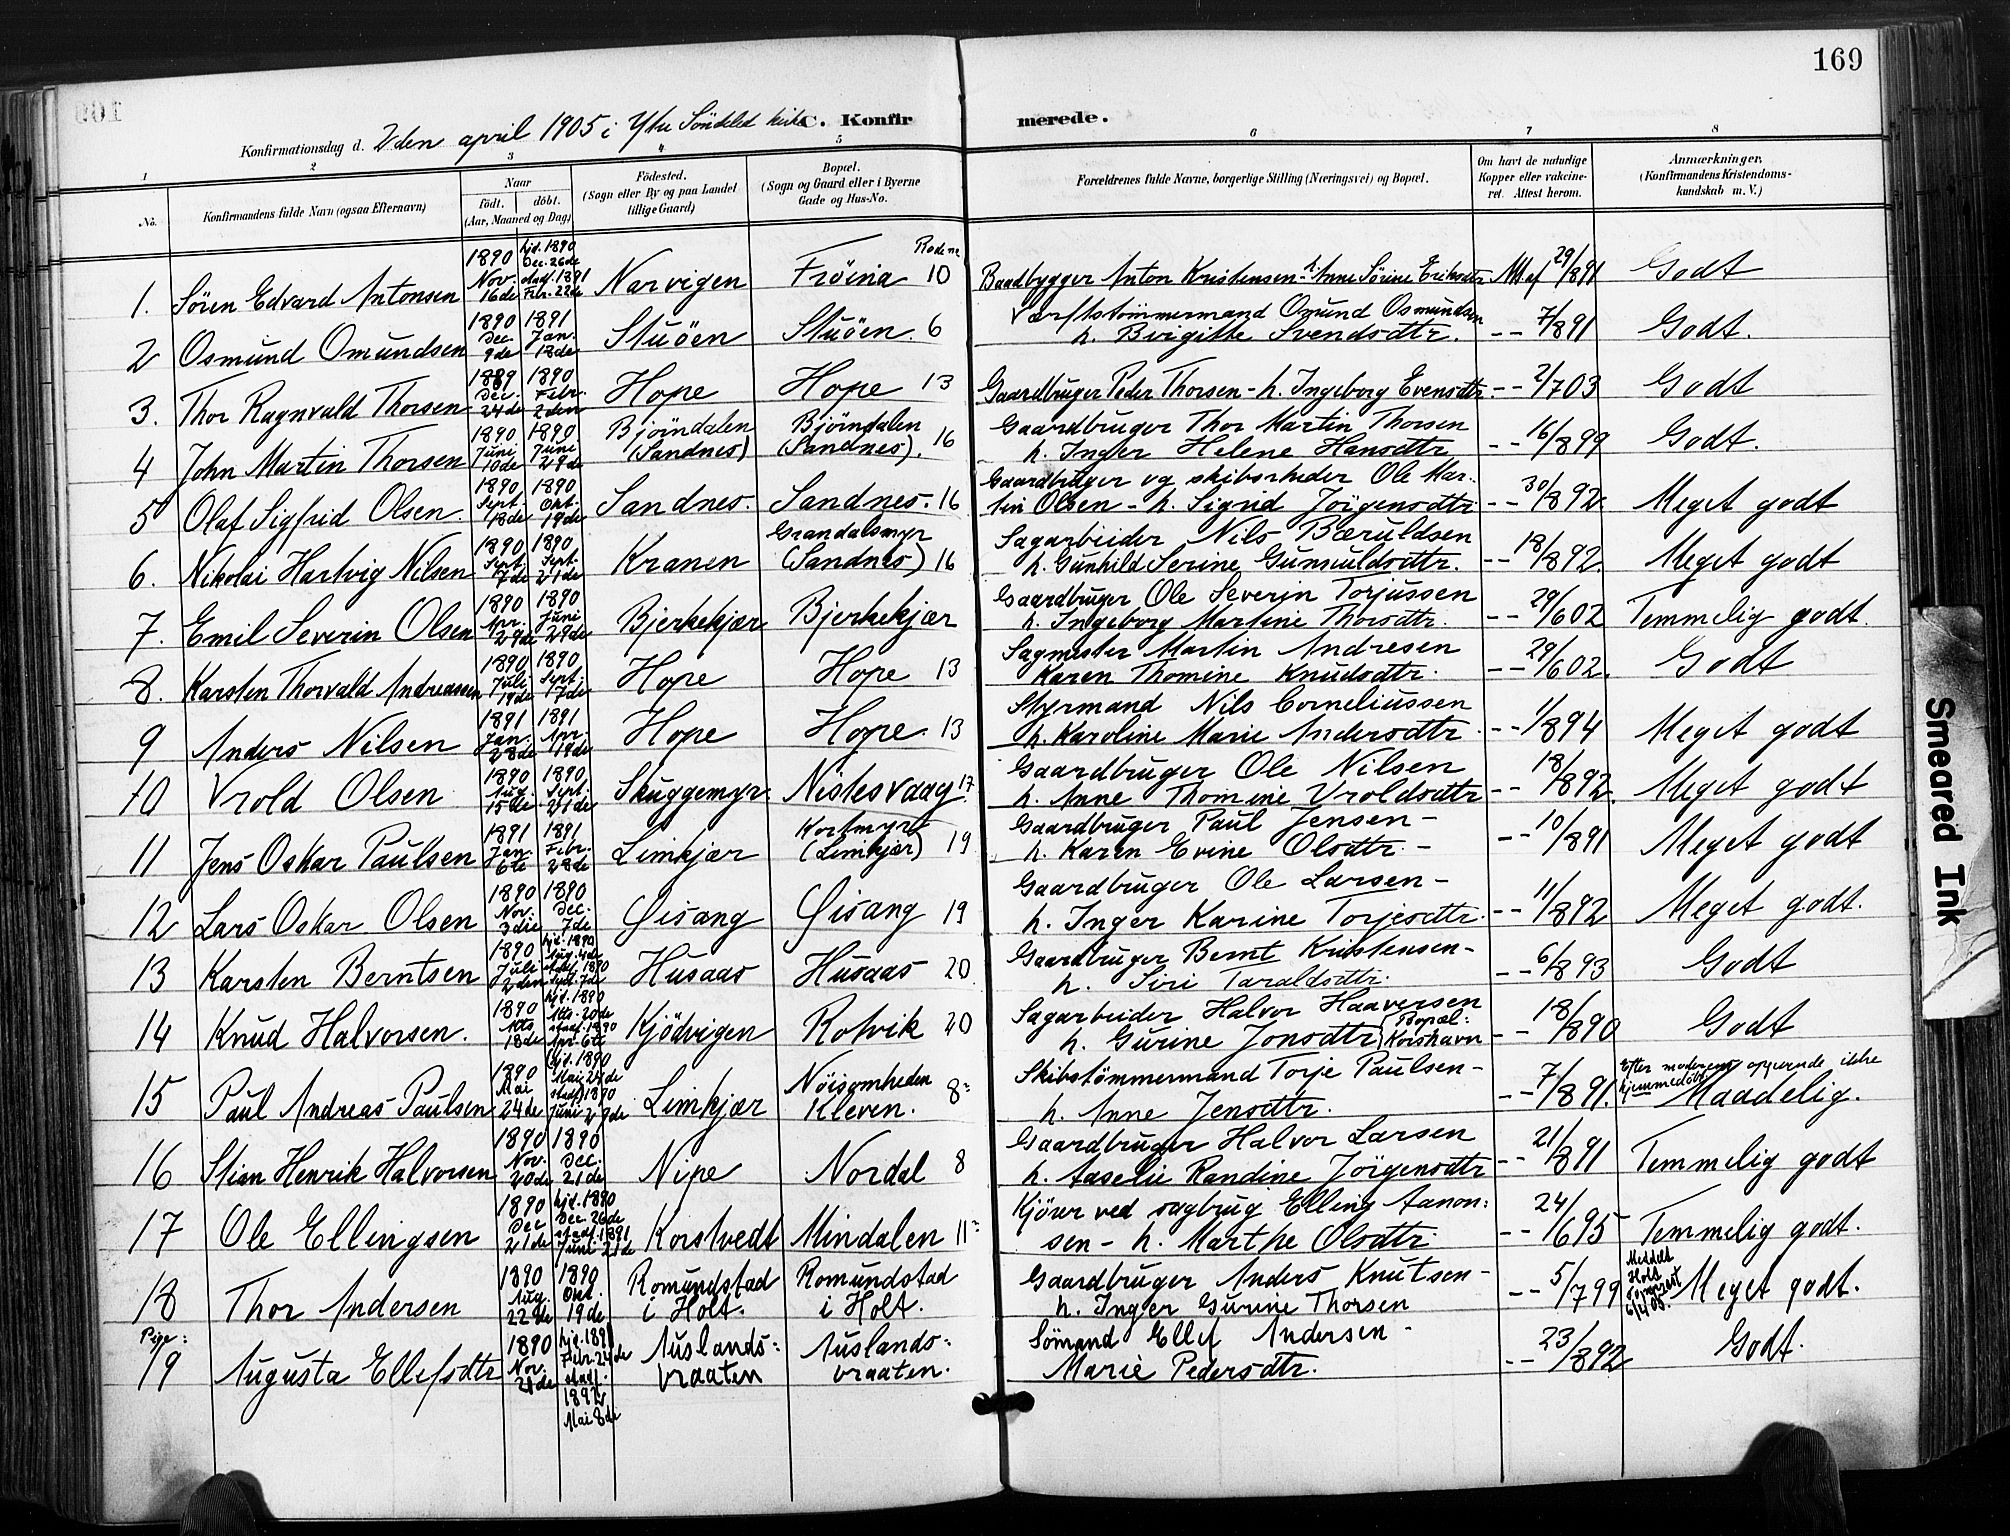 169
Konfirmationsdag d. 2den april 1905 i Ytre Søndeled kirke C. Konfirmerede.
1 2 3 4 5 6 7 8
No.
Konfirmandens fulde Navn (ogsaa Efternavn)
Naar
født. døbt.
(Aar, Maaned og Dag)
Födested.
(Sogn eller By og paa Landet
tillige Gaard)
Bopæl.
(Sogn og Gaard eller i Byerne
Gade og Hus-No.
Forældrenes fulde Navne, borgerlige Stilling (Næringsvei) og Bopæl.
Om havt de naturlige
Kopper eller vakcine-
ret. Attest herom.
Anmærkninger,
(Konfirmandens Kristendoms-
kundskab m. V.)
Rode nr
1. Søren Edvard Antonsen 1890 Nov. 16de hjd. 1890 Dec. 26de stadf. 1891 Febr. 22de Narvigen Fröina 10 Baadbygger Anton Kristensen h. Anne Sørine Eriksdtr Att. af 29/891 Godt
2 Osmund Omundsen 1890 Dec. 9de 1891 Jan. 18de Stuöen Stuöen. 6 Værftstømmermand Omund Osmundsen
h. Birgitte Svendsdtr. -- 7/891 Godt.
3. Thor Ragnvald Thorsen 1889 Dec. 24de 1890 Febr. 2den Hope Hope 13 Gaardbruger Peder Thorsen - h. Ingeborg Evensdtr. -- 2/703 Godt
4 John Martin Thorsen 1890 Juni 10de 1890 Juni 29de Bjørndalen (Sandnes) Bjørndalen (Sandnes). 16 Gaardbruger Thor Martin Thorsen
h. Inger Helene Hansdtr -- 16/899 Godt.
5 Olaf Sigfrid Olsen. 1890 Sept. 18de 1890 Okt. 19de Sandnes. Sandnes. 16 Gaardbruger og skibsrheder Ole Mar-
tin Olsen - h. Sigrid Jörgensdtr -- 30/892. Meget godt
6. Nikolai Hartvig Nilsen 1890 Sept. 7de 1890 Sept. 21de Kranen Grandalsmyr (Sandnes) 16 Sagarbeider Nils Bæruldsen
h. Gunhild Serine Gunsuldsdtr. -- 18/892. Meget godt
7. Emil Severin Olsen 1890 Apr. 29de 1890 Juni 29de Bjerkekjær Bjerkekjær Gaardbruger Ole Severin Torjussen
h. Ingeborg Martine Thorsdtr. -- 29/602 Temmelig godt.
8. Karsten Thorvald Andreassen 1890 Juli 19de 1890 Sept. 17de Hope Hope 13 Sagmester Martin Andresen
Karen Thomine Knudsdtr. -- 29/602. Godt
9 Anders Nilsen 1891 Jan. 28de 1891 Apr. 19de Hope Hope. 13 Styrmand Nils Corneliussen
h. Karoline Marie Andersdtr. -- 1/894 Meget godt
10 Vrold Olsen 1890 Aug. 15de 1890 Sept. 21de Skuggemyr Nistesvaag 17. Gaardbruger Ole Nilsen
h. Anne Thomine Vroldsdtr -- 18/892. Meget godt
11 Jens Oskar Paulsen 1891 Jan. 6te 1891 Febr. 28de Limkjær Kortmyr (Limkjær) 19 Gaardbruger Paul Jensen -
h. Karen Evine Olsdtr. - -- 10/891 Meget godt
12 Lars Oskar Olsen 1890 Nov. 3die 1890 Dec. 7de Øisang Øisang 19 Gaardbruger Ole Larsen -
h. Inger Karine Torjesdtr. -- 11/892 Meget godt.
13 Karsten Berntsen 1890 Juli 2den hjd. 1890 Aug. 4de stadf. 1890 Sept. 7de Husaas Husaas 20 Gaardbruger Bernt Kristensen -
h. Siri Taraldsdtr. -- 6/893 Godt
14 Knud Halvorsen. 1890 Mts. 18de hjd. 1890 Mts. 20de stadf. 1890 Apr. 6te Kjödvigen Rotvik 20 Sagarbeider Halvor Haaversen
h. Gurine Jonsdtr Bopæl: Korshavn -- 18/890 Godt
15 Paul Andreas Paulsen 1890 Mai 24de hjd. 1890 Mai 24de stadf. 1890 Juni 29de Limkjær Nöisomheden Kleven. 8: Skibstömmermand Torje Paulsen -
h. Anne Jensdtr. -- 7/891. Efter moderens opgivende ikke hjemmedøbt Maadelig.
16 Stian Henrik Halvorsen 1890 Nov. 20de 1890 Dec. 21de Nipe Nordal 8 Gaardbruger Halvor Larsen
h. Aaselie Randine Jörgensdtr -- 21/891 Temmelig godt
17 Ole Ellingsen 1890 Dec 21de hjd. 1890 Dec. 26de stadf. 1891 Juni 21de Korstvedt Mindalen 11: Kjører ved sagbrug Elling Aanon:
sen - h. Marthe Olsdtr. -- 24/695 Temmelig godt.
18 Thor Andersen 1890 Aug. 22de 1890 Okt. 19de Romundstad i Holt. Romundstad i Holt. Gaardbruger Anders Knutsen -
h. Inger Gurine Thorsen -- 5/799 Meddelt Holt 6/4 05. Meget godt.
Pige:
19 Augusta Ellefsdtr 1890 Nov. 21de hjd. 1891 Febr. 24de stadf. 1892 Mai 8de Auslands: braaten Auslands: braaten. Sömand Ellef Andersen -
Marie Pedersdtr. -- 23/892 Godt.
Smeared Ink